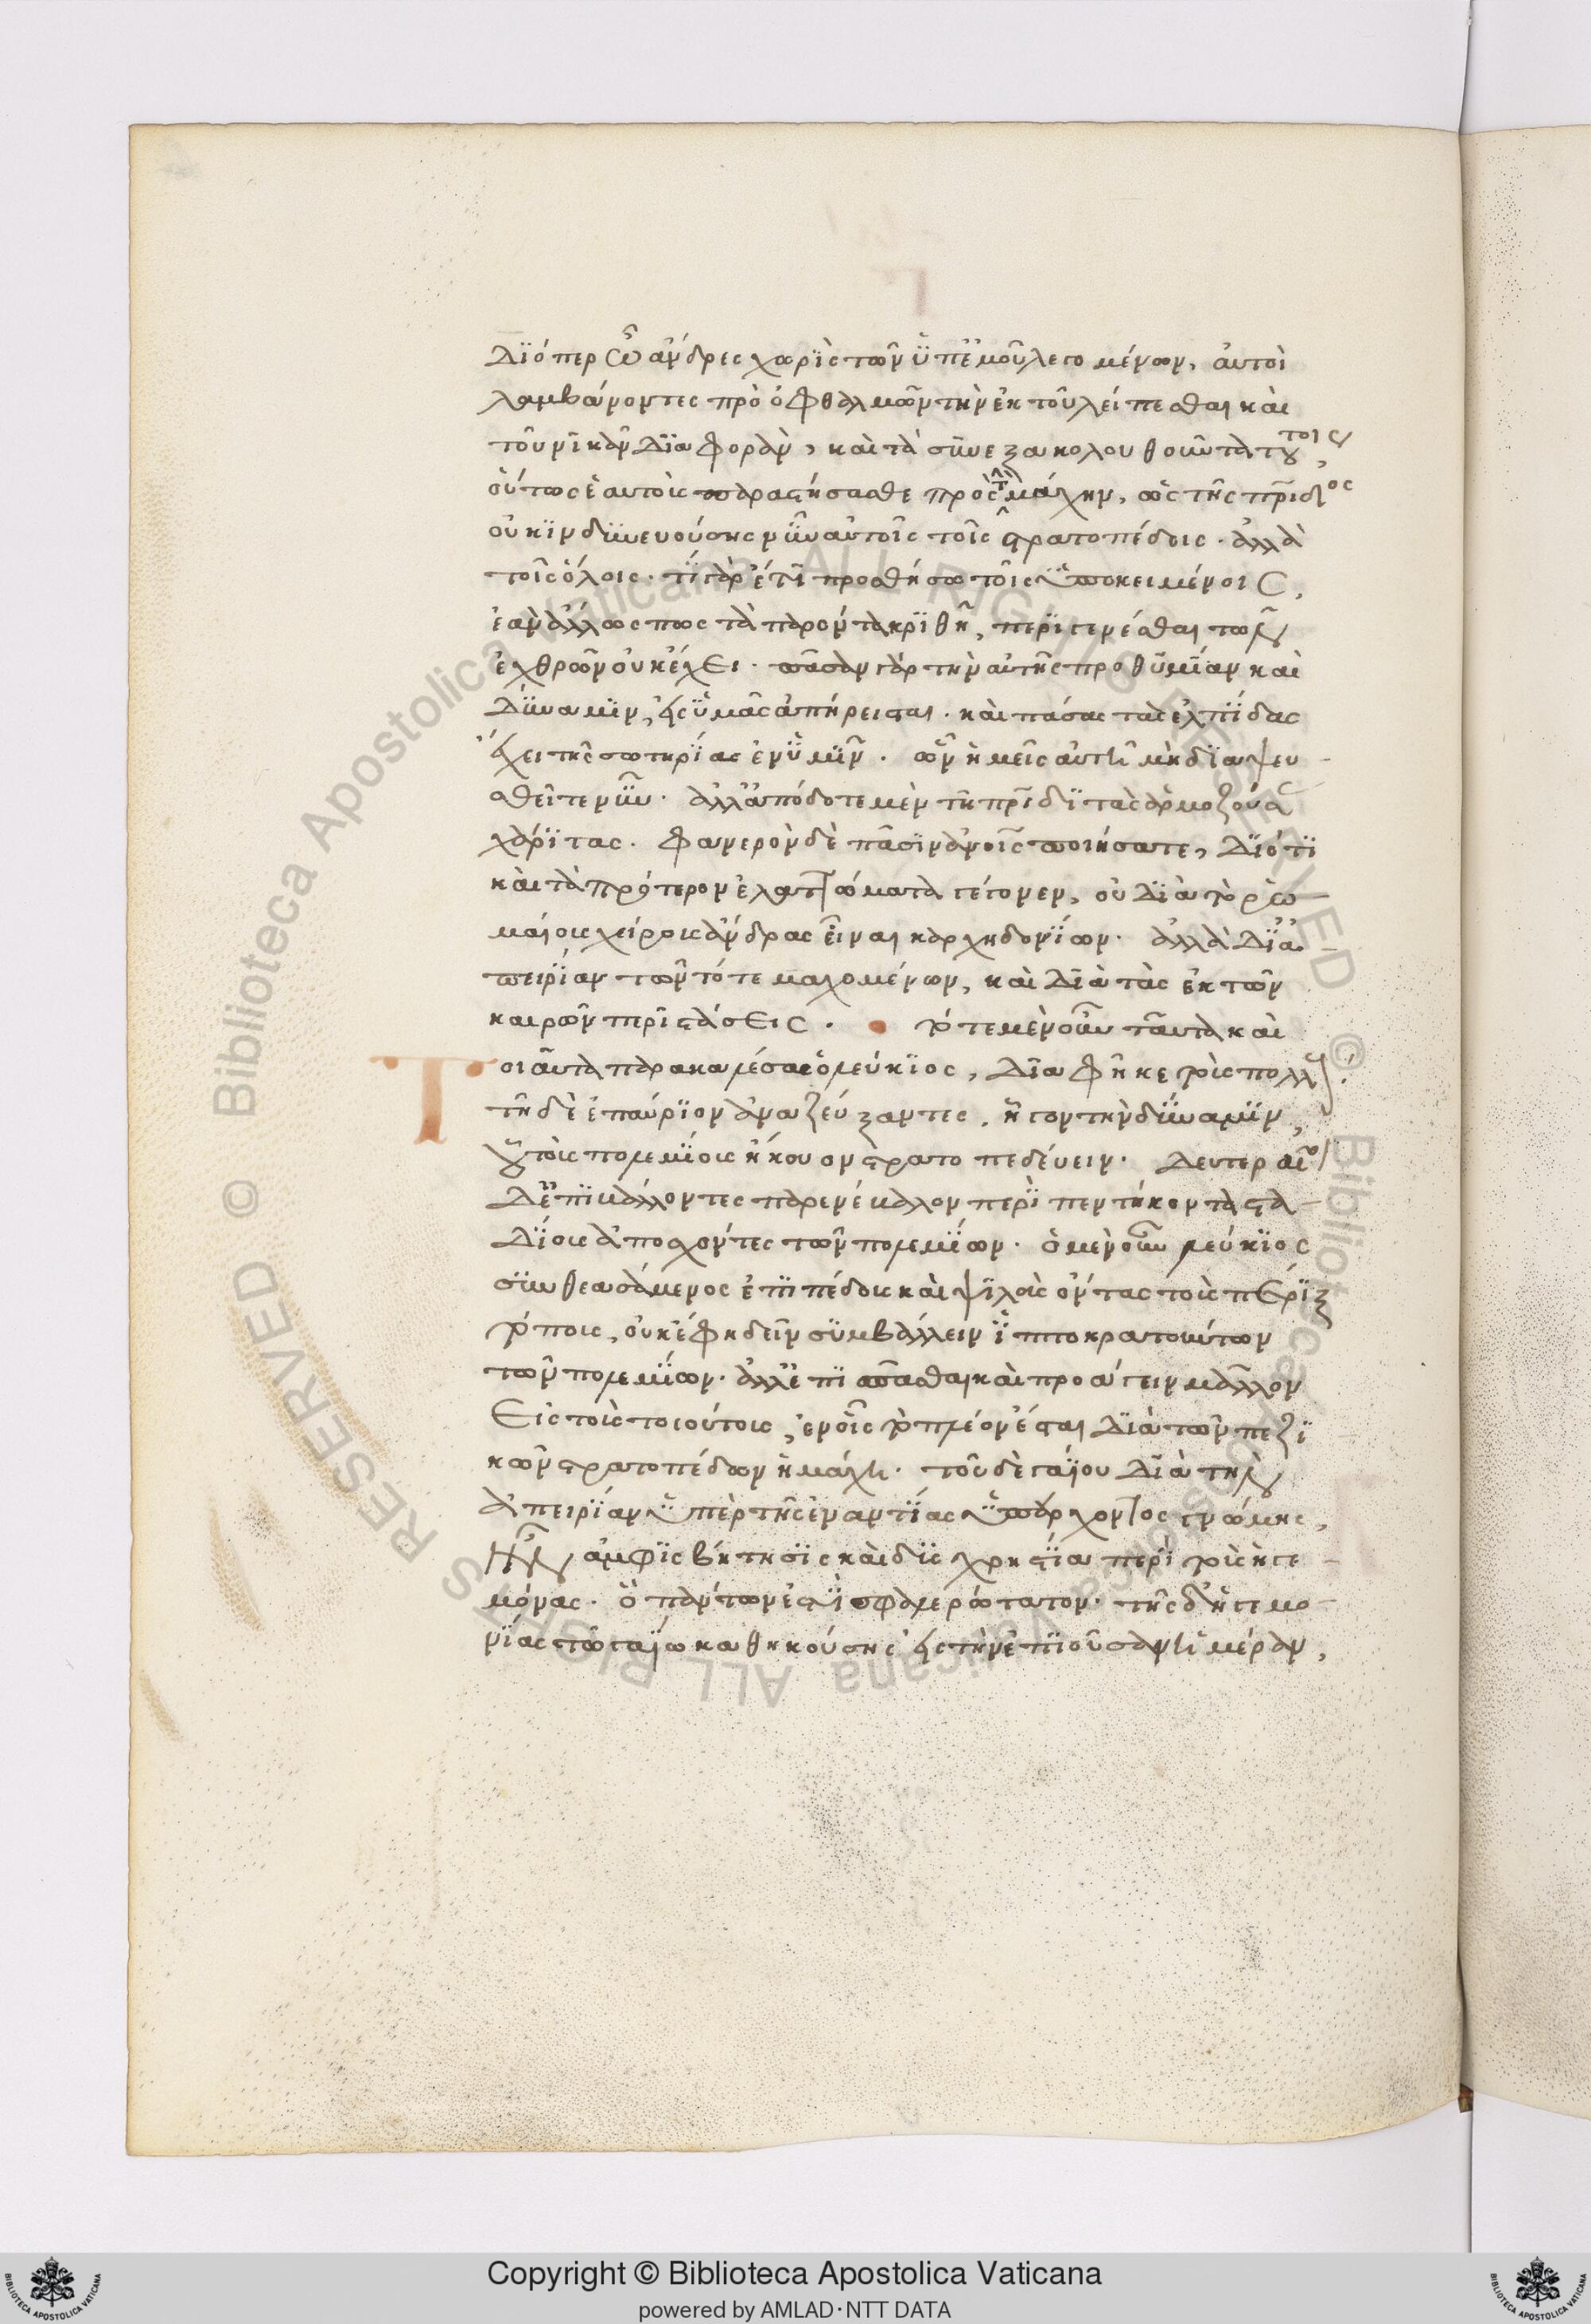 Διόπερ ὦ ἄνδρες χωρὶς τῶν ὑπ' ἐμοῦ λεγομένων, αὐτοὶ
λαμβάνοντες πρὸ ὀφθαλμῶν τὴν ἐκ τοῦ λείπεσθαι καὶ
τοῦ νικᾶν διαφορὰν, καὶ τὰ συνεξακολουθοῦντα τούτοις,
οὕτως ἑαυτοὺς παραστήσασθε πρὸς τὴν μάχην, ὡς τῆς πατρίδος
οὐ κινδυνευούσης νῦν αὐτοῖς τοῖς στρατοπέδοις. ἀλλὰ
τοῖς ὅλοις. τί γὰρ ἔτι προσθήσω τοῖς ὑποκειμένοις,
ἐὰν ἄλλως πως τὰ παρόντα κριθῇ, περιγενέσθαι τῶν
ἐχθρῶν οὐκ ἔχει. πᾶσαν γὰρ τὴν αὑτῆς προθυμίαν καὶ
δύναμιν, εἰς ὑμᾶς ἀπήρεισται. καὶ πάσας τὰς ἐλπίδας
ἔχει τῆς σωτηρίας ἐν ὑμῖν. ὧν ἡμεῖς αὐτὴ μὴ διαψευ-
σθεῖτε νῦν. ἀλλ' ἀπόδοτε μὲν τῇ πατρίδι τὰς ἁρμοζούσας
χάριτας. φανερὸν δὲ πᾶσιν ἀνθρώποις ποιήσατε, διότι
καὶ τὰ πρότερον ἐλαττώματα γέγονεν, οὐ διὰ τὸ ῥω-
μαίους χείρους ἄνδρας εἶναι καρχηδονίων. ἀλλὰ δι' ἀ-
πειρίαν τῶν τότε μαχομένων, καὶ διὰ τὰς ἐκ τῶν
καιρῶν περιστάσεις. τότε μὲν οὖν ταῦτα καὶ
Τοιαῦτα παρακαλέσας ὁ λεύκιος, διαφῆκε τοὺς πολλούς.
τῇ δὲ ἐπαύριον ἀναζεύξαντες, ἦγον τὴν δύναμιν,
οὗ τοὺς πολεμίους ἤκουον στρατοπεδεύειν. δευτεραῖοι
δ' ἐπιβάλλοντες παρενέβαλον περὶ πεντήκοντα στα-
δίους ἀποσχόντες τῶν πολεμίων. ὁ μὲν οὖν λεύκιος
συνθεασάμενος ἐπιπέδους καὶ ψιλοὺς ὄντας τοὺς πέριξ
τόπους, οὐκ ἔφη δεῖν συμβάλλειν ἱπποκρατούντων
τῶν πολεμίων. ἀλλ' ἐπισπᾶσθαι καὶ προάγειν μᾶλλον
εἰς τοὺς τοιούτους, ἐν οἷς τὸ πλέον ἔσται διὰ τῶν πεζι
κῶν στρατοπέδων ἡ μάχη. τοῦ δὲ γαΐου διὰ τὴν
ἀπειρίαν ὑπὲρ τῆς ἐναντίας ὑπάρχοντος γνώμης,
ἦν ἀμφισβήτησις καὶ δυσχρηστία περὶ τοὺς ἡγε-
μόνας. ὃ πάντων ἐστὶ σφαλερώτατον. τῆς δ' ἡγεμο-
νίας τῷ γαΐῳ καθηκούσης εἰς τὴν ἐπιοῦσαν ἡμέραν,
Copyright © Biblioteca Apostolica Vaticana
powered by AMLAD·NTT DATA